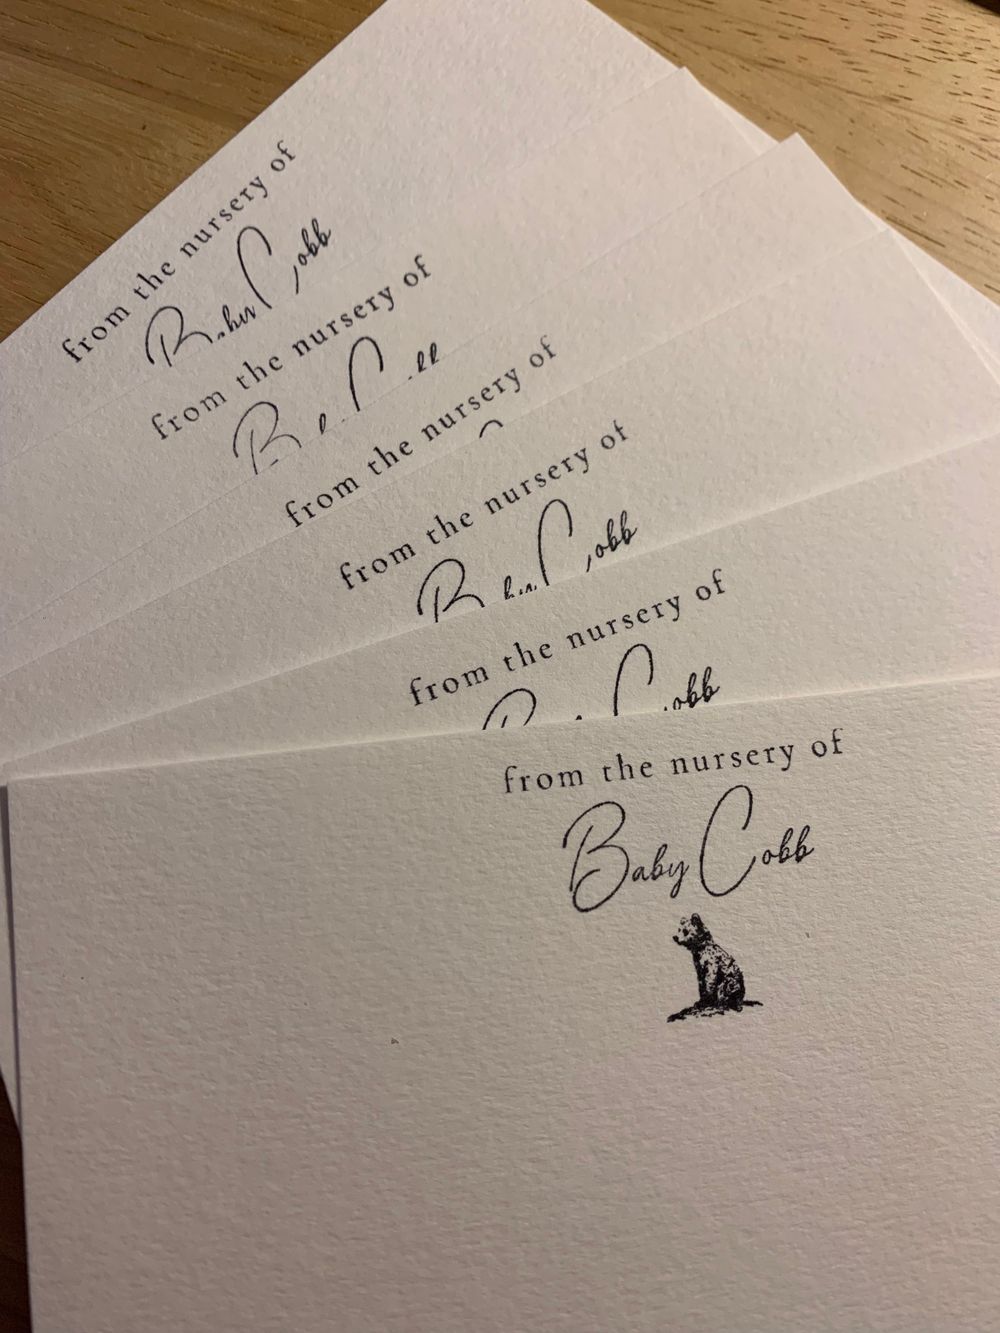 from the nursery of
from the nursery of
from the nursery of
from the nursery of
Cobb
from the nursery of
Cobb
from the nursery of
Baby Cobb